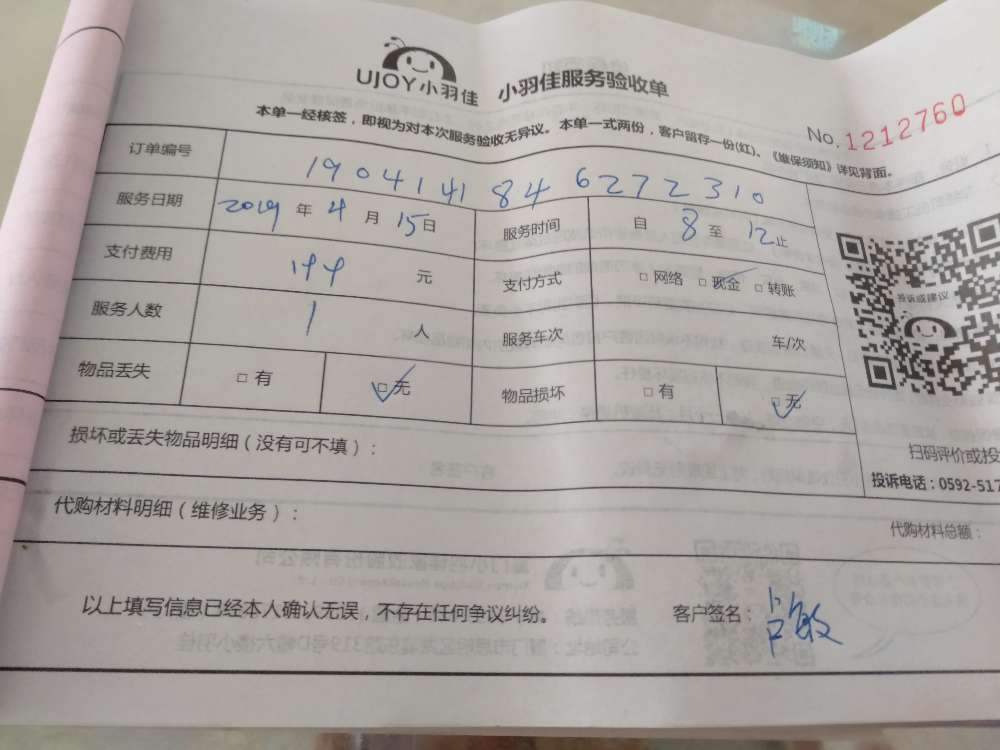 UJOY小羽佳 小羽佳服务验收单
No.1212760
本单一经核签，即视为对本次服务验收无异议。本单一式两份，客户留存一份(红)、《维保须知》详见背面。
订单编号 1904141846272310
服务日期 2019 年 4 月 15 日 服务时间 自 8 至 12 止
支付费用 144 元 支付方式 □ 网络 □ 现金 □ 转账
服务人数 1 人 服务车次 车/次
物品丢失 □ 有 □ 无 物品损坏 □ 有 □ 无
投诉或建议
扫码评价或投
投诉电话：0592-517
损坏或丢失物品明细（没有可不填）：
代购材料明细（维修业务）：
代购材料总额：
以上填写信息已经本人确认无误，不存在任何争议纠纷。 客户签名：占敏